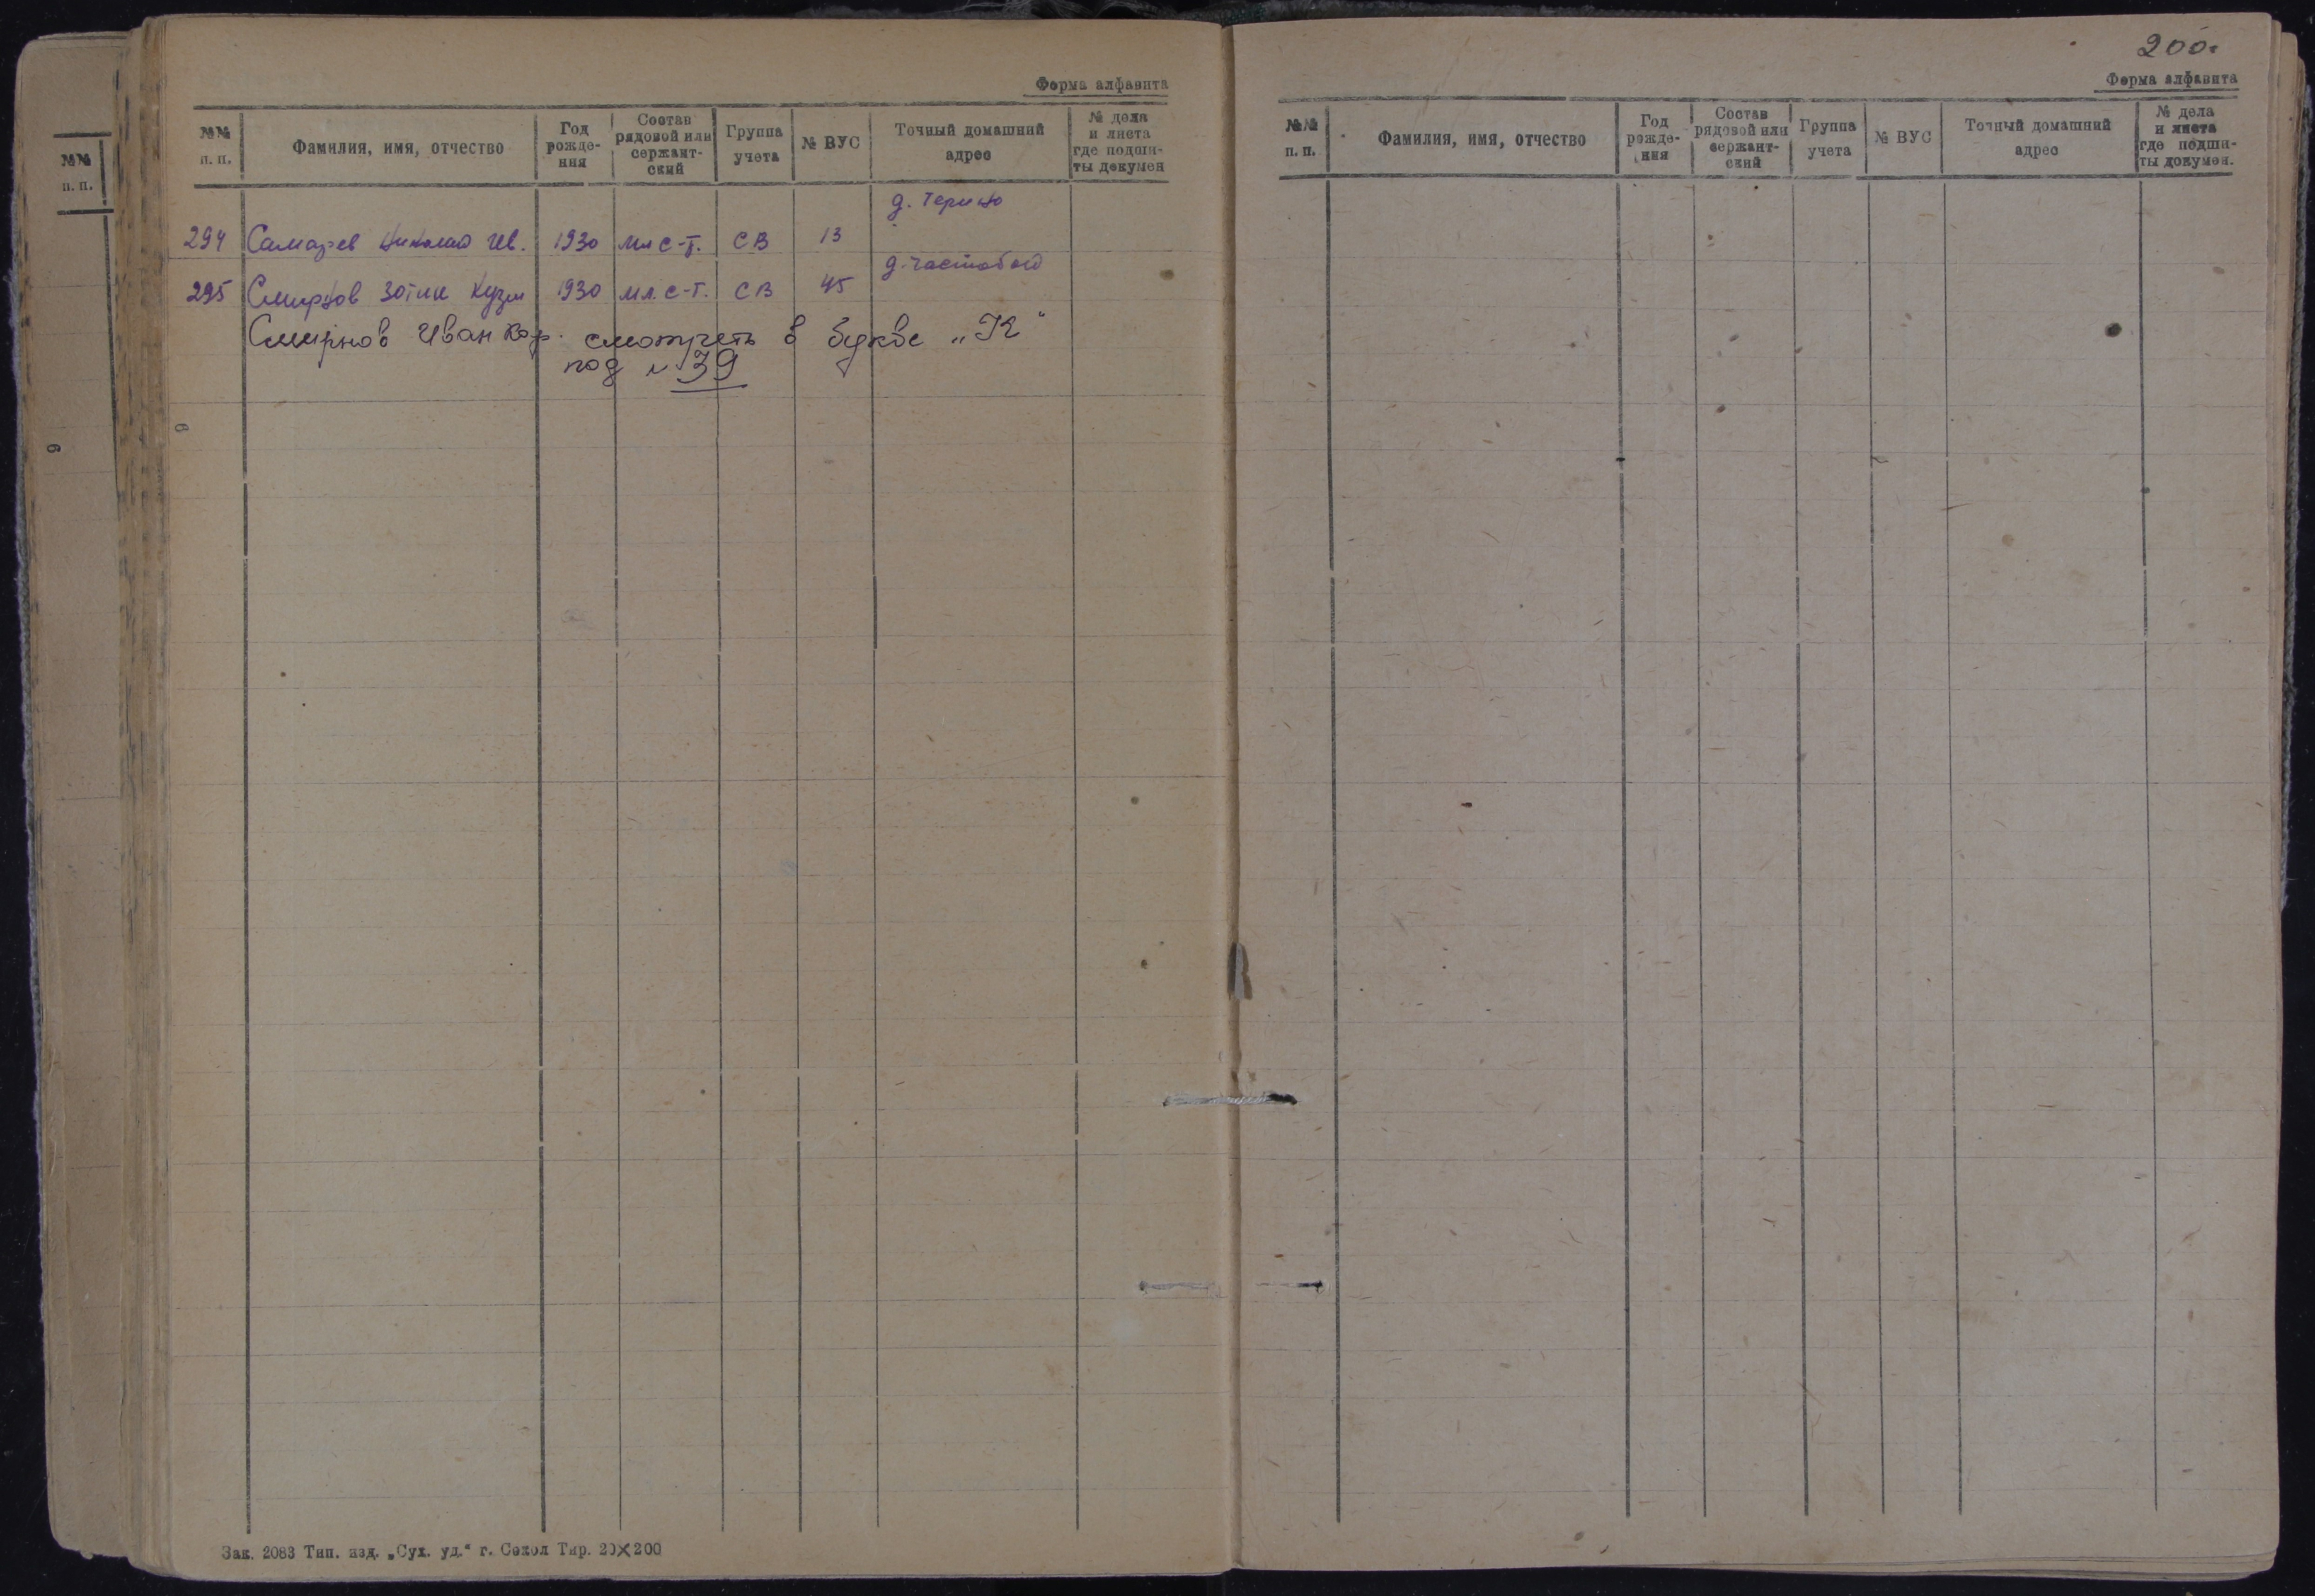 №№
п. п.
6
Форма алфавита
№№
п. п.
Фамилия, имя, отчество
Год
рожде-
ния
Состав
рядовой или
сержант-
ский
Группа
учета
№ ВУС
Точный домашний
адрес
№ дела
и листа
где подши-
ты докумен
д.
294 Николай Ив. 1930 мл с-т. СВ 13
д.
295 Смирнов Зотик Кузм 1930 мл. с-т. СВ 45
Смирнов Иван смотреть в букве „К"
под № 39
6
Зак. 2083 Тип. изд. „Сух. уд.“ г. Сокол Тир. 20×200
200.
Форма алфавита
№№
п. п.
Фамилия, имя, отчество
Год
рожде-
ния
Состав
рядовой или
сержант-
ский
Группа
учета
№ ВУС
Точный домашний
адрес
№ дела
и листа
где подши-
ты докумен.